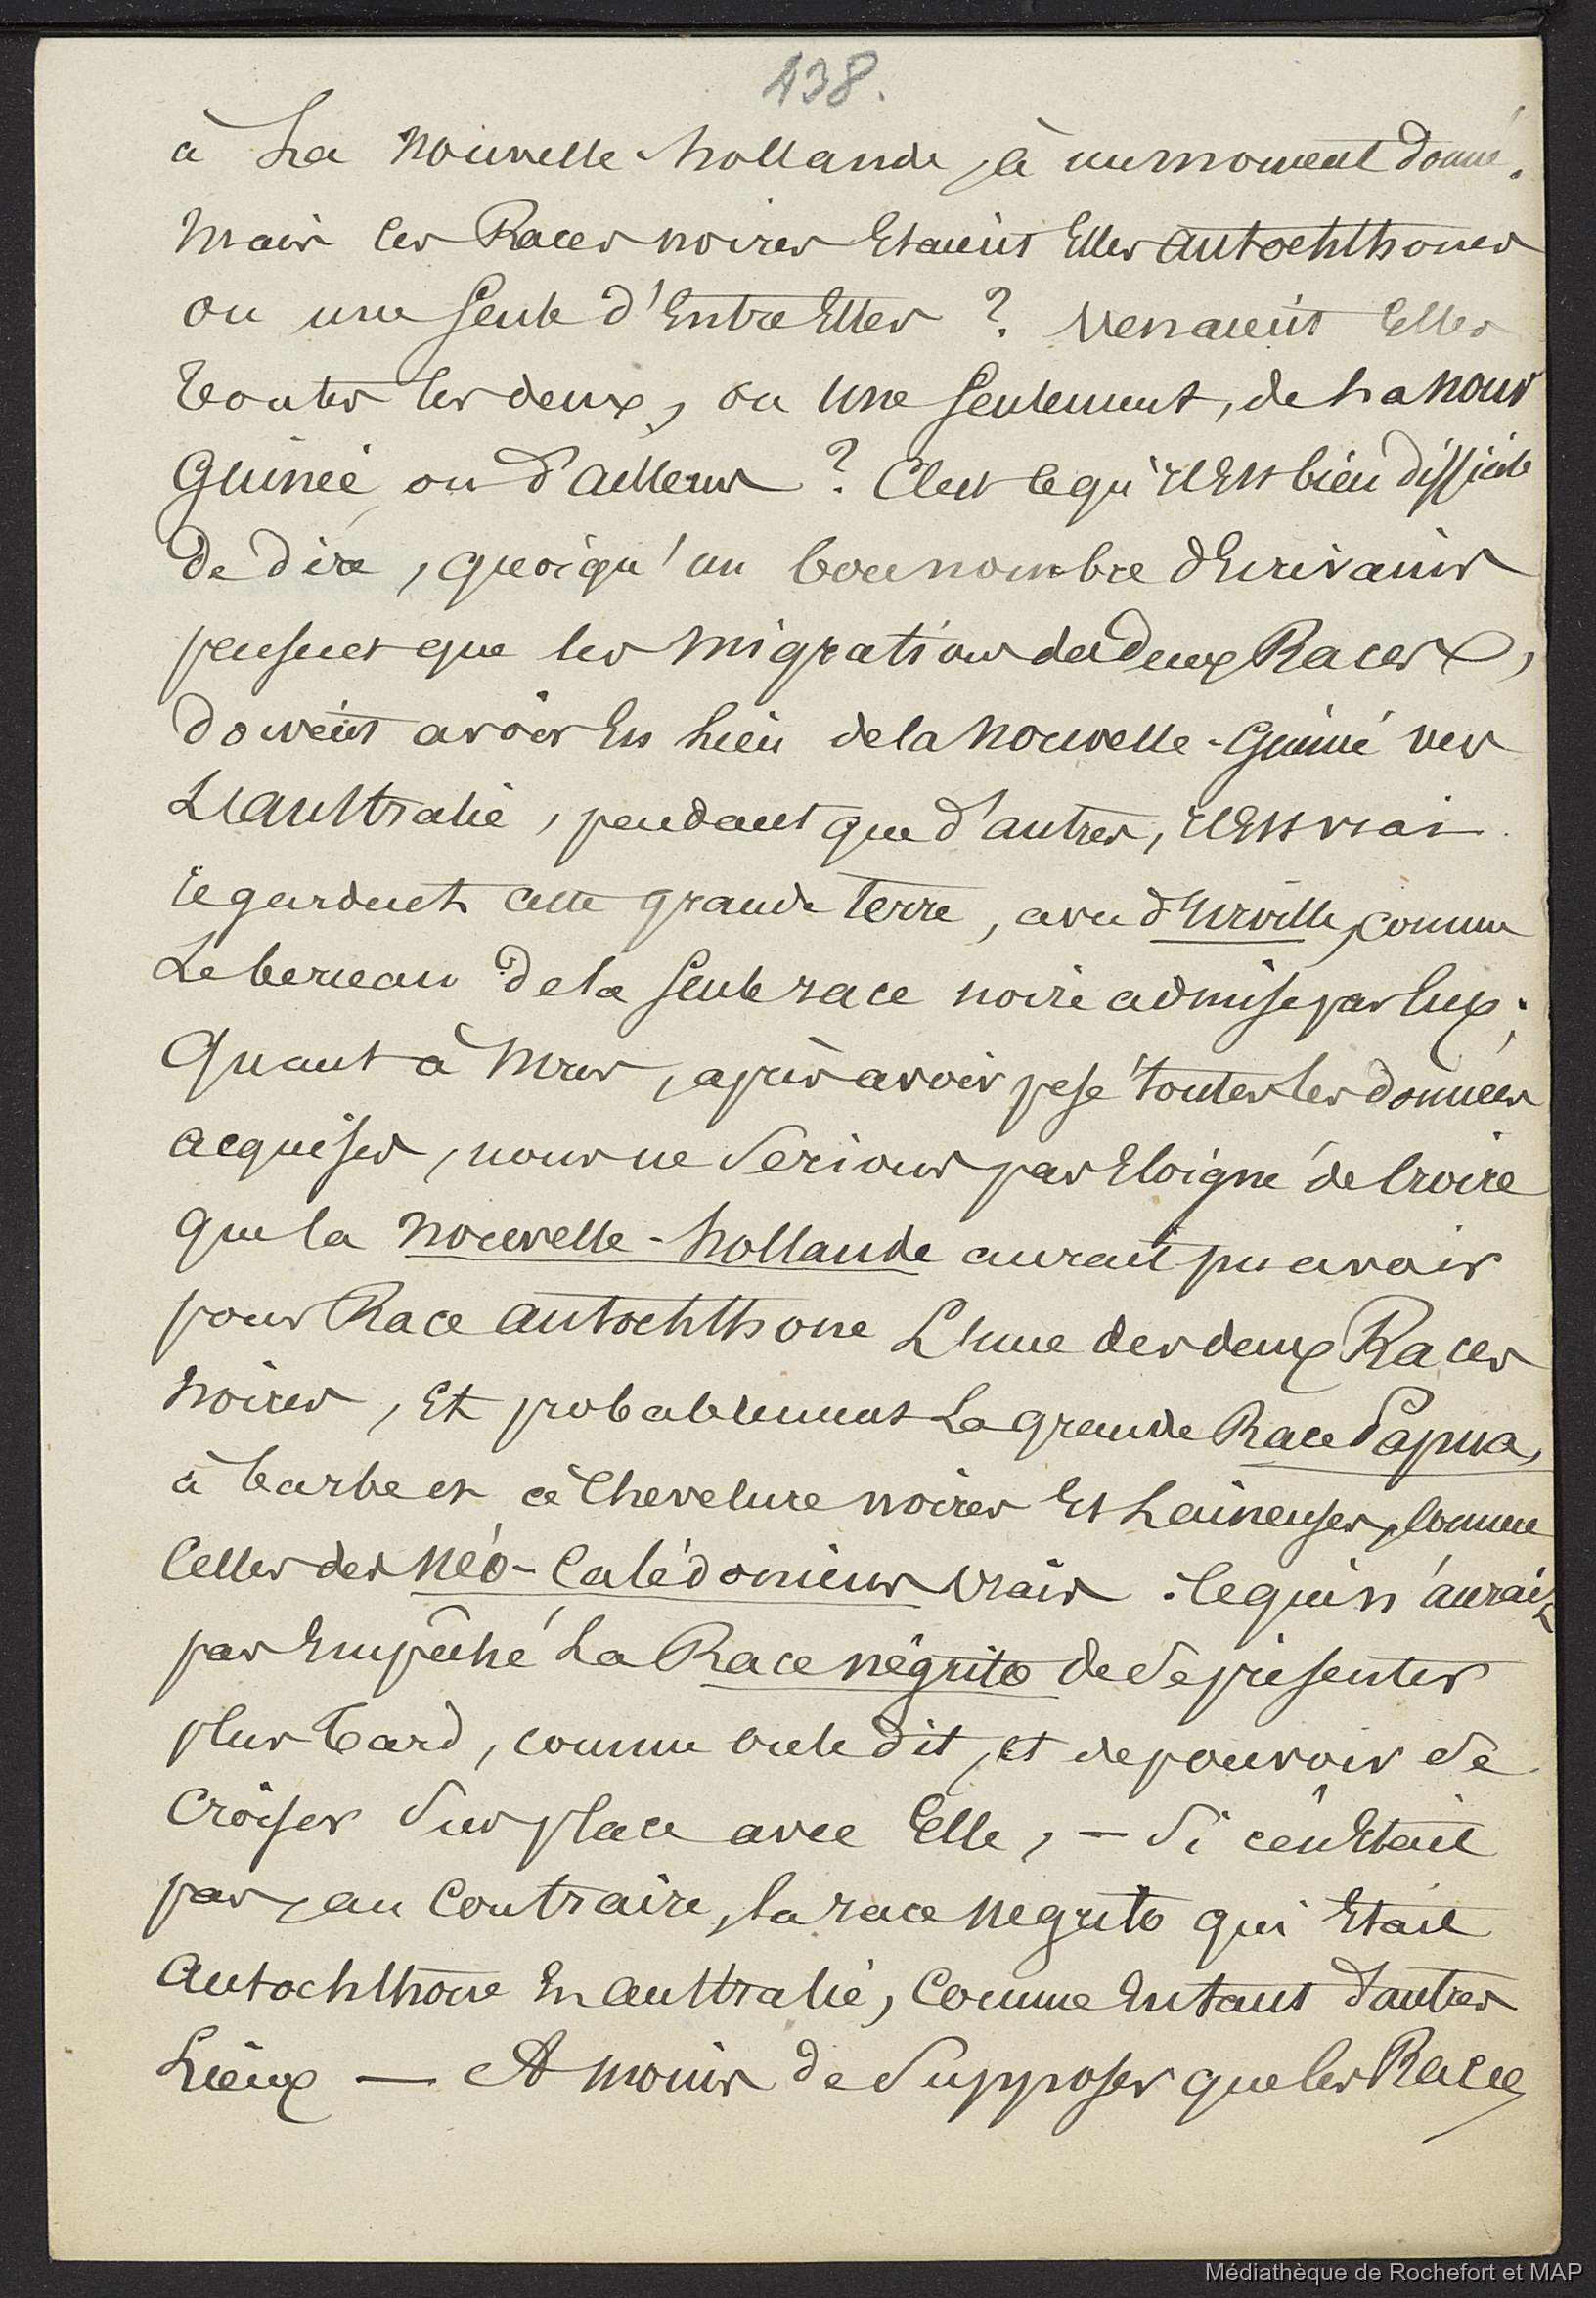 438.
à La Nouvelle-hollande, à un moment donné.
Mais les Races noires Etaient Elles autochthones
ou une Seule d'Entre Elles ? Venaient Elles
Toutes les deux, ou Une Seulement, de La Nouv
Guinée, ou d'ailleurs ? C'est ce qu'il Est bien difficile
de dire, quoiqu'un bon nombre d'Ecrivains
pensent que les Migrations des deux Races,
doivent avoir Eu Lieu de la Nouvelle-Guinée vers
L'australie, pendant que d'autres, il Est vrai
regardent cette grande Terre, avec d'Urville, comme
Le berceau de la Seule race noire admise par lui.
Quant à Nous, après avoir pesé toutes les données
acquises, nous ne Serions pas Eloigné de Croire
que la Nouvelle-hollande aurait pu avoir
pour Race autochthone L'une des deux Races
Noires, Et probablement La grande Race Papua,
à barbe et à Chevelure noires Et Laineuses, Comme
Celles des Néo-Calédoniens Vrais. Ce qui n'aurait
pas Empêché La Race négrito de Se présenter
plus Tard, comme on le dit, et de pouvoir Se
Croiser Sur place avec Elle, — Si ce n'Etait
pas, au Contraire, la race Negrito qui Etait
Autochthone En australie, Comme En tant d'autres
Lieux — A moins de Supposer que les Races
Médiathèque de Rochefort et MAP